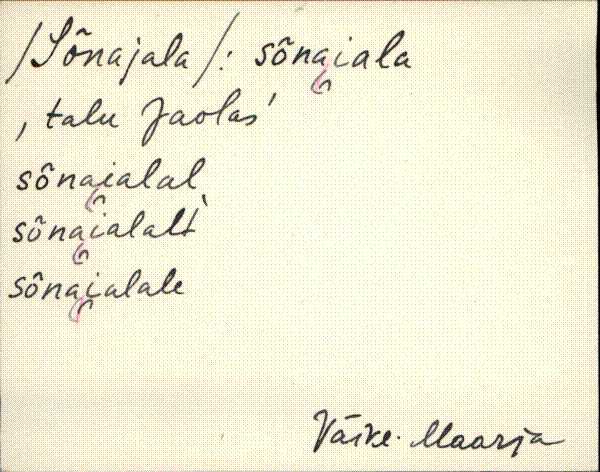 /Sõnajala/: sõnai̯ala
, talu Jaolas'
sõnai̯alal
sõnai̯alal̀t
sõnai̯alale
Väike-Maarja